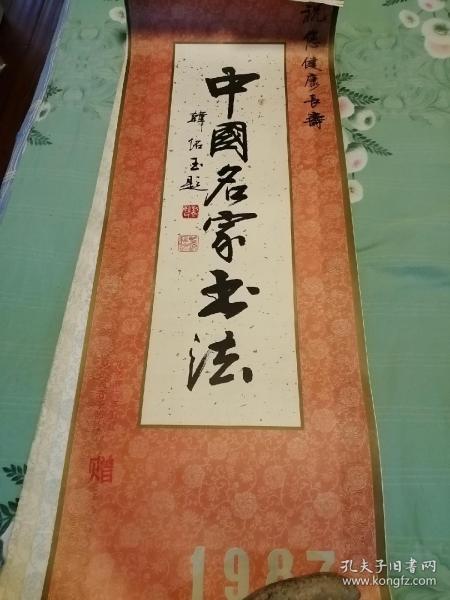 祝您健康长寿
中國名家书法
韓伯玉題
赠
1987
孔夫子旧书网
www.kongfz.com